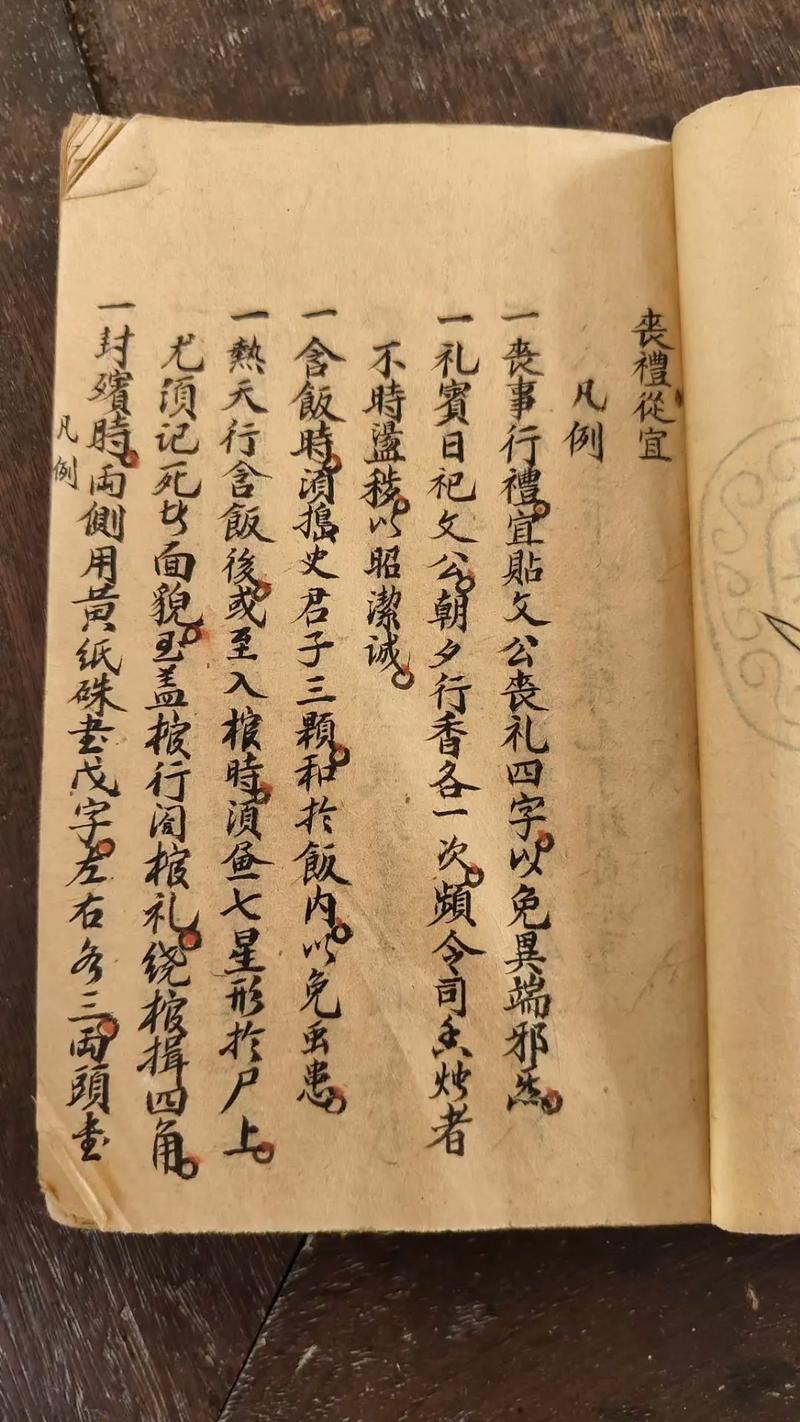 喪禮從宜
凡例
一喪事行禮。宜貼文公喪礼四字。以免異端邪
一礼賓日祀文公。朝夕行香各一次。頻令司香烛者
不時盪穢。以昭潔誠。
一含飯時。須搗史君子三顆。和於飯内。以免虫患。
一熱天行含飯後。或至入棺時。須七星形於尸上。
尤須记死面貌。盖棺行棺礼。绕棺揖四角。
一封殯時。両側用黄纸硃書戊字。左右各三。両頭書
凡例